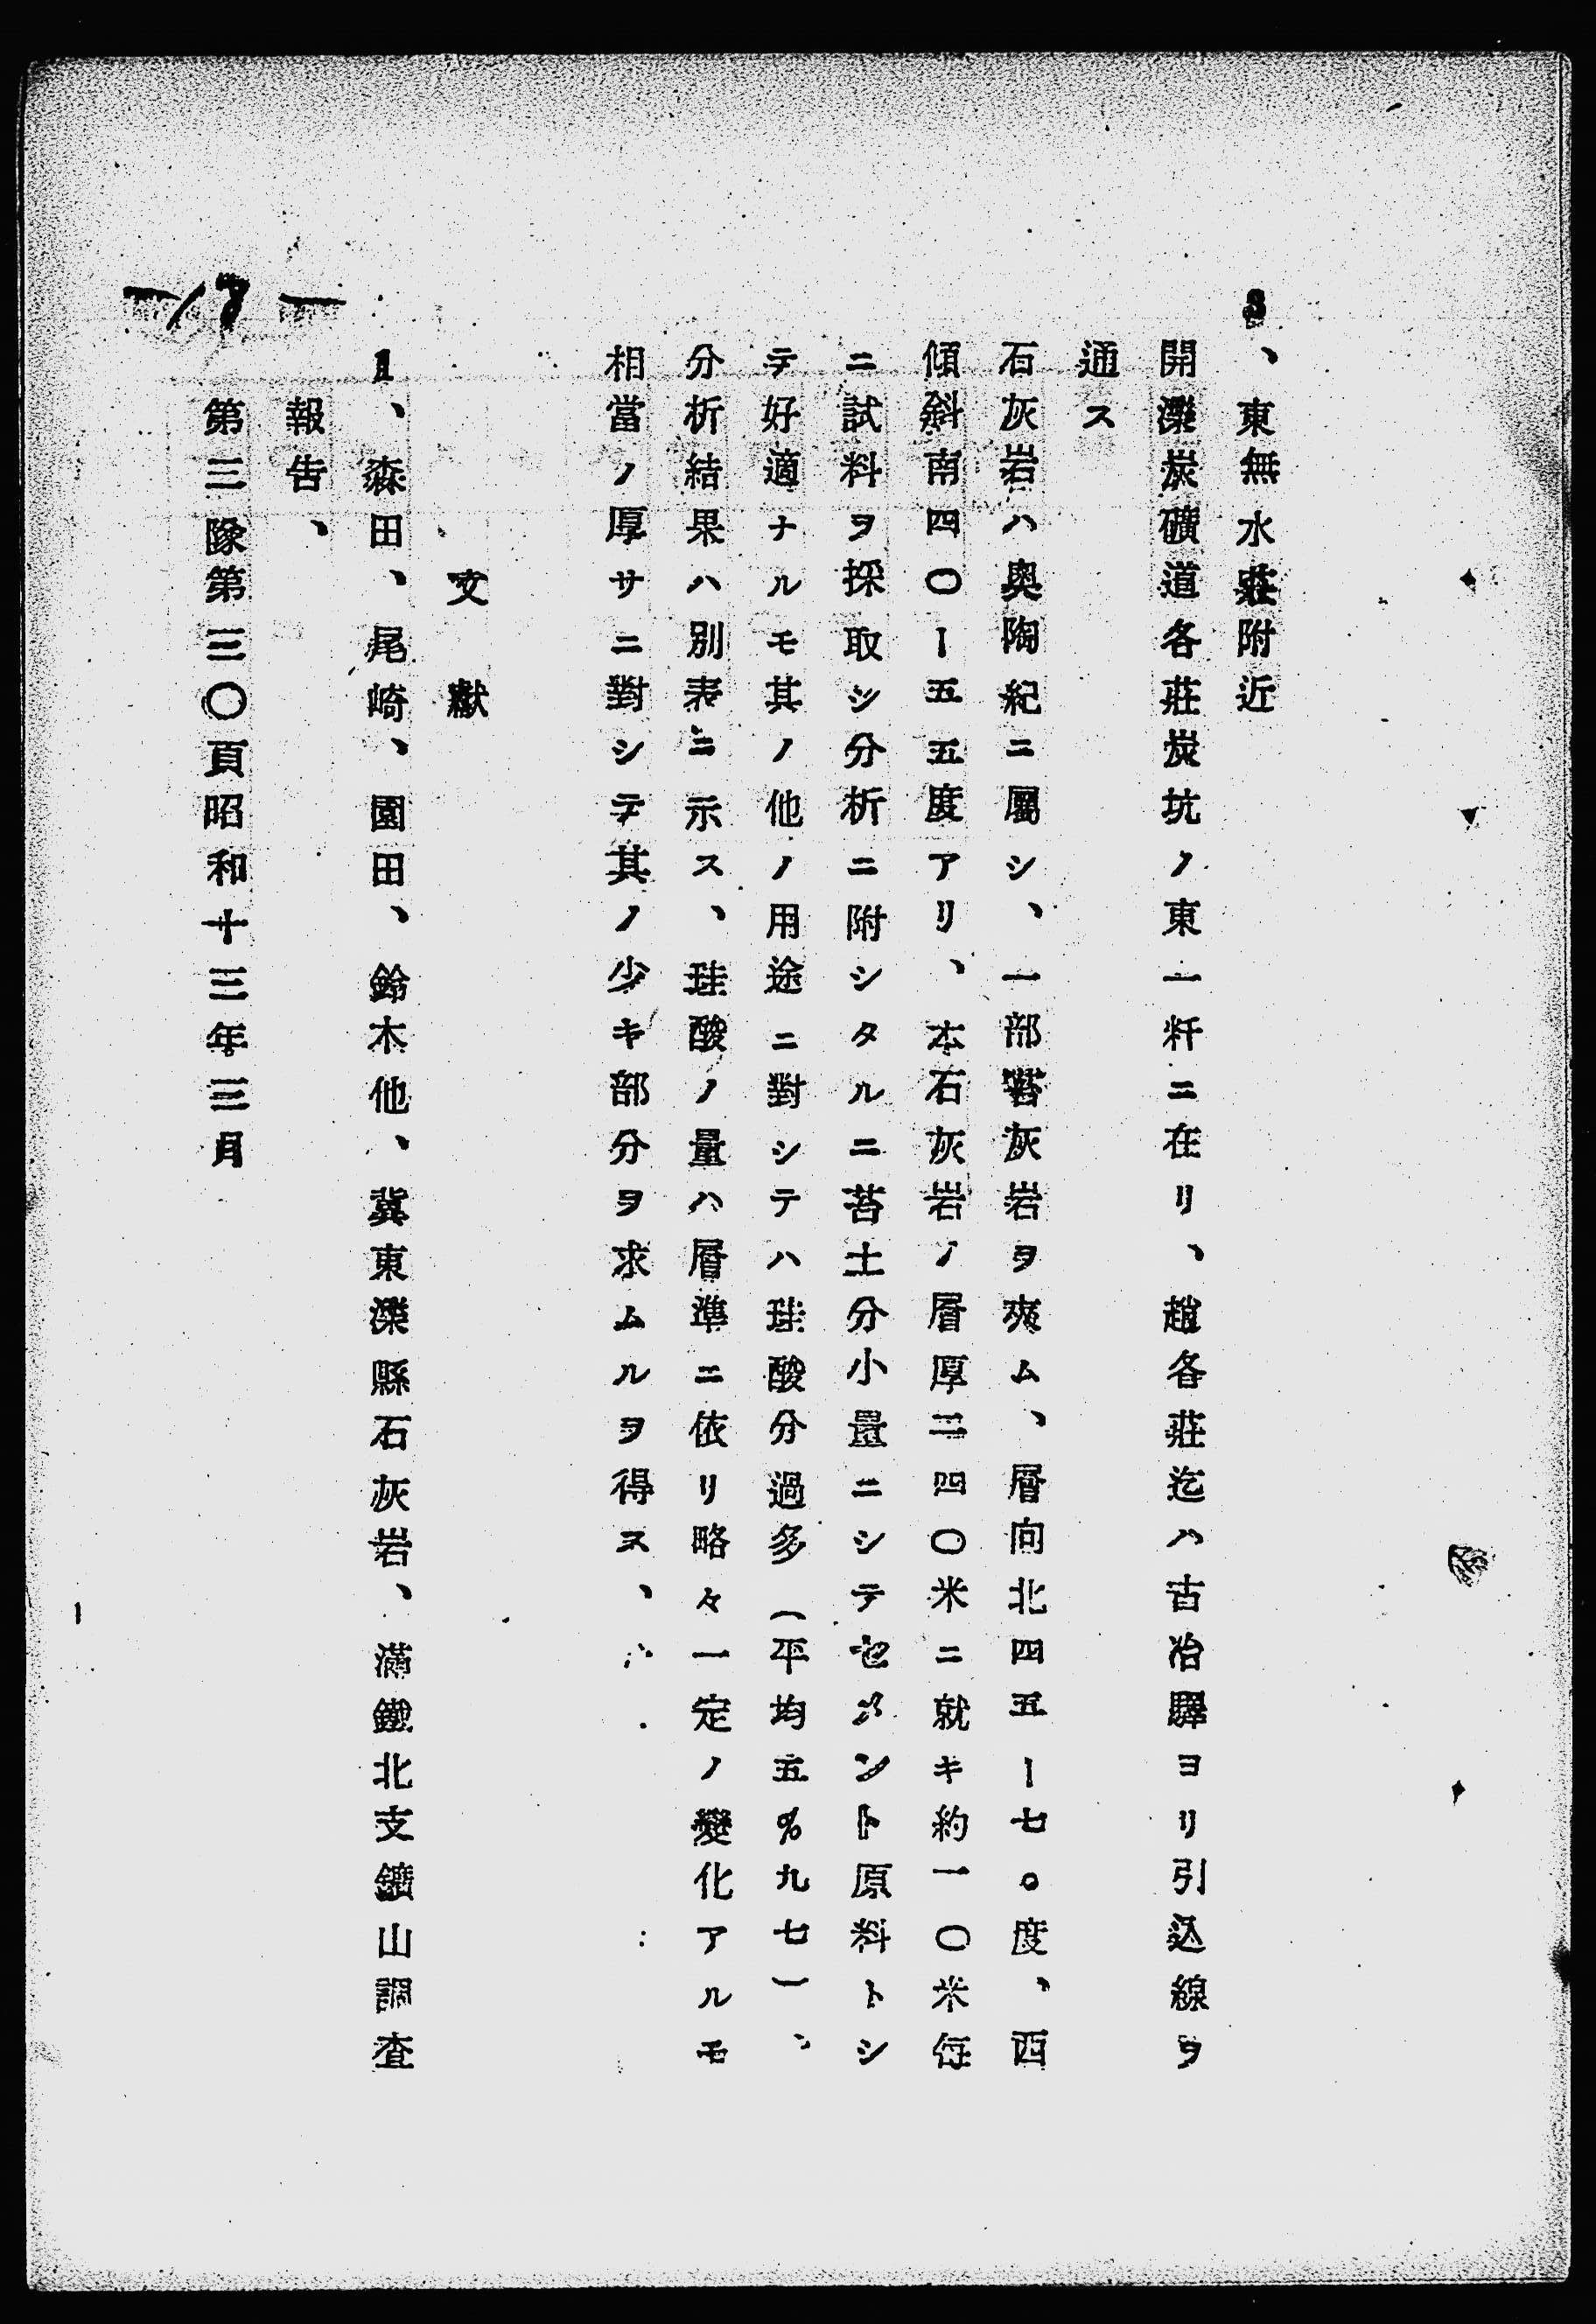 3、東無水莊附近
開灤炭礦道各莊炭坑ノ東一粁ニ在リ、趙各莊迄ハ古冶驛ヨリ引込線ヲ
通ス
石灰岩ハ奧陶紀ニ屬シ、一部礬灰岩ヲ夾ム、層向北四五ー七〇度、西
傾斜南四〇ー五五度アリ、本石灰岩ノ層厚二四〇米ニ就キ約一〇米每
ニ試料ヲ採取シ分析ニ附シタルニ苔土分小量ニシテセメント原料トシ
テ好適ナルモ其ノ他ノ用途ニ對シテハ珪酸分過多(平均五%九七)、
分析結果ハ別表ニ示ス、珪酸ノ量ハ層準ニ依リ略々一定ノ變化アルモ
相當ノ厚サニ對シテ其ノ少キ部分ヲ求ムルヲ得ス、
文獻
1、森田、尾崎、園田、鈴木他、冀東灤縣石灰岩、滿鐵北支鑛山調查
報吿、
第三隊第三〇頁昭和十三年三月
—18—